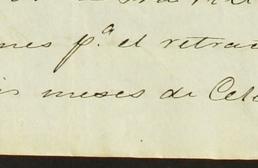 nes p.ª el retrac
is meses de Cele